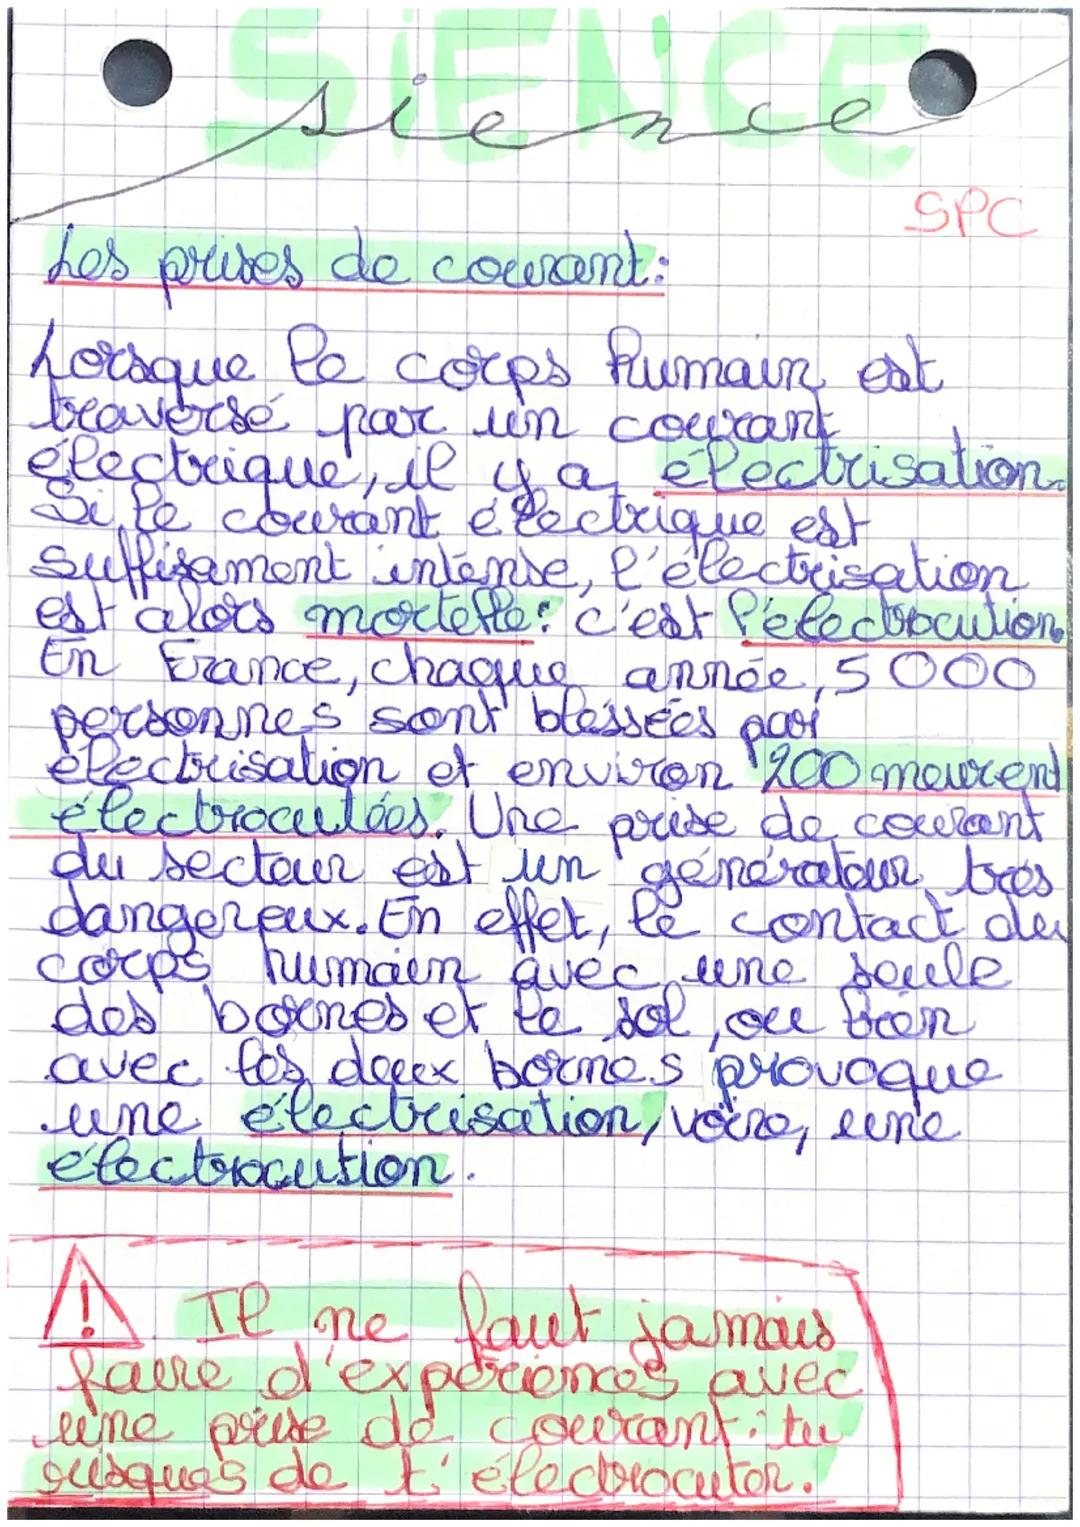 SiENCE
sience
SPC
Les prises de courant:
Lorsque le corps humain est
traversé par un courant
électrique, il y a électrisation.
Si le courant électrique est
suffisament intense, l'électrisation
est alors mortelle: c'est l'électrocution.
En France, chaque année, 5 000
personnes sont blessées par
électrisation et environ 200 meurent
électrocutées. Une prise de courant
du secteur est un générateur très
dangereux. En effet, le contact du
corps humain avec une seule
des bornes et le sol, ou bien
avec les deux bornes provoque
une électrisation, voire, une
électrocution.
! Il ne faut jamais
faire d'expériences avec
une prise de courant: tu
risques de t'électrocuter.